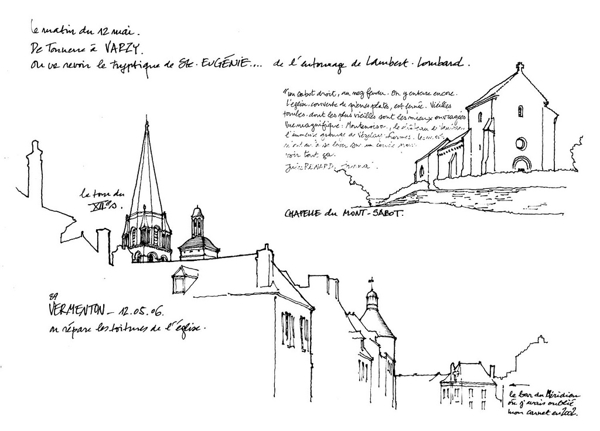 le matin du 12 mai.
De Tonnerre à VARZY.
on va revoir le tryptique de Ste. EUGÉNIE... de l'entourage de Lambert. Lombard.
un sabot droit, au nez fendu. On y entasse encore.
L'église, couverte de pierres plates, est fermée. Vieilles
tombes. dont les plus vieilles sont les mieux ouvragées
Vue magnifique: Montenoison, le château de
de Vézelay
voir tout ça.
Jules RENARD. Journal.
la tour du
XIIe s.
CHAPELLE du MONT-SABOT.
VERMENTON - 12.05.06.
on répare les toitures de l'église.
le bar du Méridien
où j'avais oublié
mon carnet en 2002.